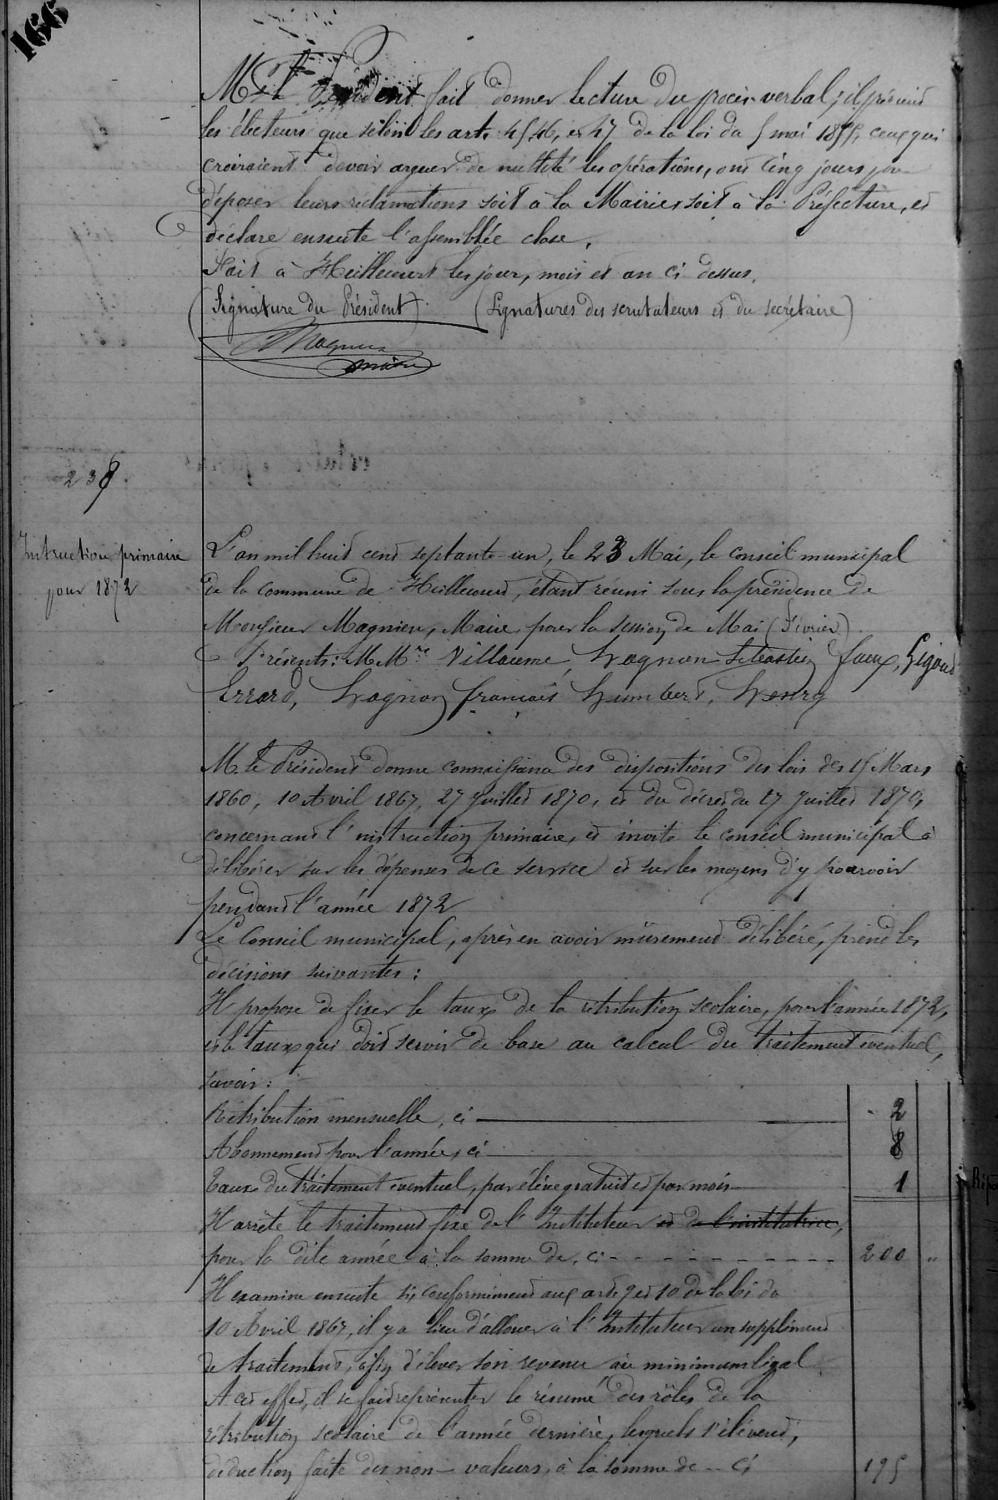 166
Mr le Président fait donner lecture du procès-verbal; il prévient
les électeurs que selon les arts 45, 46, et 47 de la loi du 5 mai 1855, ceux qui
croiraient devoir arguer de nullité les opérations, ont cinq jours pour
déposer leurs réclamations soit à la Mairie, soit à la Préfecture, et
déclare ensuite l'assemblée close.
Fait à Huillecourt les jour, mois et an ci dessus.
(Signature du Président). (Signatures des scrutateurs et du secrétaire)
Magnien
maire
238
Instruction primaire
pour 1872
L'an mil huit cent septante-un, le 23 Mai, le conseil municipal
de la commune de Huillecourt, étant réuni sous la présidence de
Monsieur Magnien, Maire, pour la session de Mai (Février)
Présents: M.Mrs Villaume, Lognon Sébastien, Faux, Gigout
Errard, Lognon français, Humbert, Henry
M. le Président donne connaissance des dispositions des lois des 15 Mars
1860, 10 Avril 1867, 27 Juillet 1870, et du décret du 27 Juillet 1870,
concernant l'instruction primaire, et invite le conseil municipal à
délibérer sur les dépenses de ce service et sur les moyens d'y pourvoir
pendant l'année 1872
Le Conseil municipal, après en avoir mûrement délibéré, prend les
décisions suivantes:
Il propose de fixer le taux de la rétribution scolaire, pour l'année 1872,
et le taux qui doit servir de base au calcul du traitement éventuel,
savoir:
Rétribution mensuelle, ci 2
Abonnement pour l'année, ci 8
Taux du traitement éventuel, par élève gratuit et par mois 1
Il arrête le traitement fixe de l'Instituteur et de l'institutrice,
pour la dite année à la somme de, ci - - - - - - - - 200 "
Il examine ensuite si, conformément aux arts 9 et 10 de la loi du
10 Avril 1867, il y a lieu d'allouer à l'Instituteur un supplément
de traitement, afin d'élever son revenu au minimum légal
A cet effet, il se fait représenter le résumé des rôles de la
rétribution scolaire de l'année dernière, lesquels s'élèvent,
déduction faite des non-valeurs, à la somme de - ci 195